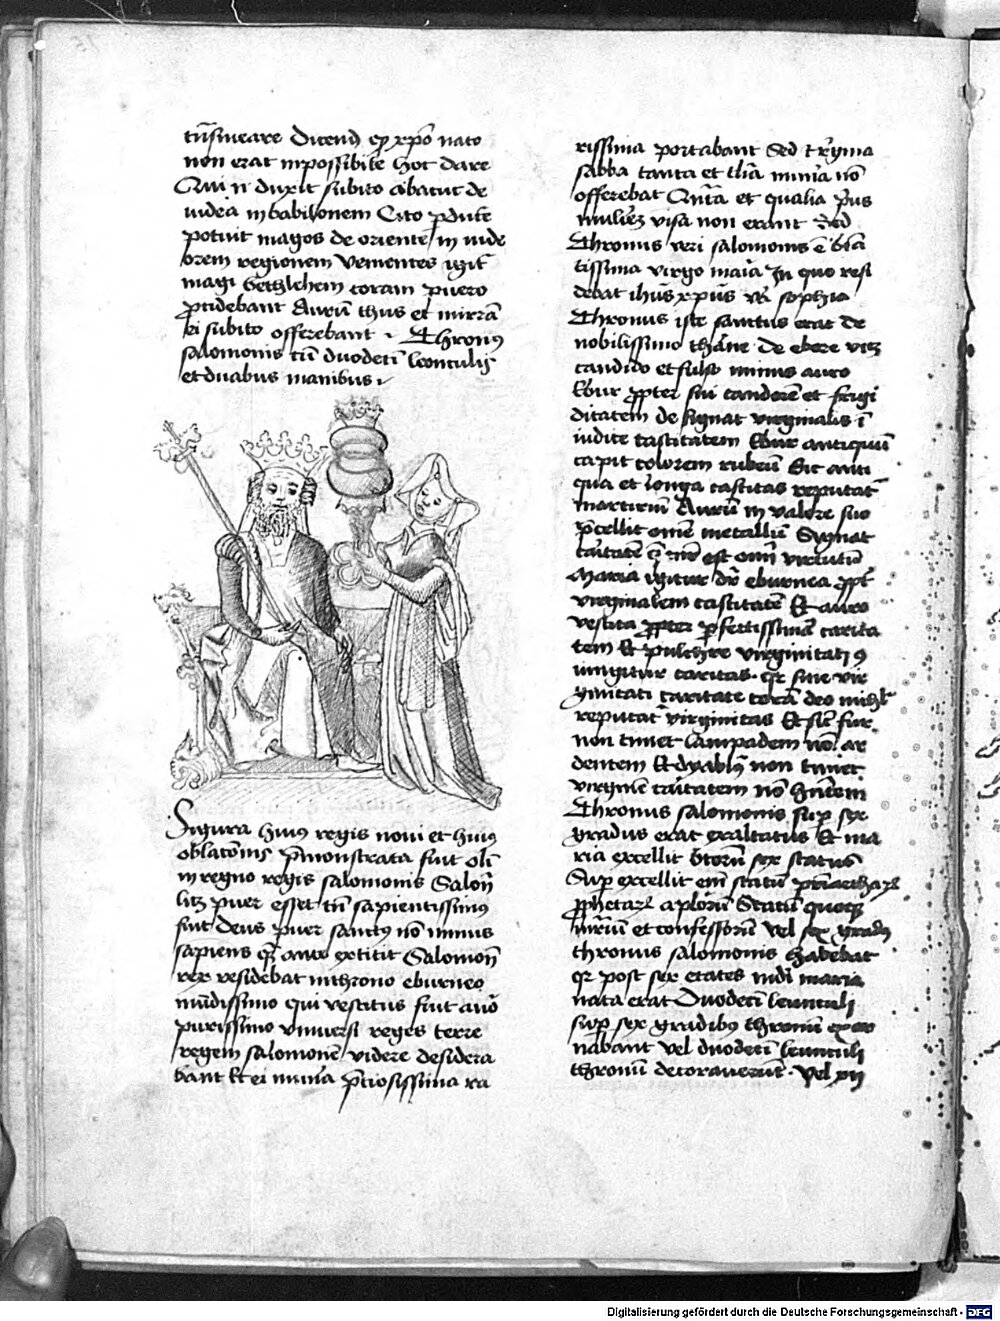 tn̄smeare Dicend ꝙ xp̄o nato
non erat inpossibile hoc dare
Qui n̄ duxit subito abacuc de
iudea in babilonem Cito ꝑduce
potuit magos de oriente in iude
orem regionem Venientes igit̄
magi bethlehem coram puero
ꝓcidebant Aurū thus et mirrā
ei subito offerebant · Thronꝰ
salomonis cū duodecī leonculis
et duabus manibus ·
Figura huiꝰ regis noui et huiꝰ
oblacōnis p̄monstrata fuit olī
in regno regis salomonis Salon̄
licꝫ puer esset tn̄ sapientissimꝰ
fuit deus puer sanctꝰ nō minus
sapiens extitit Salomon̄
rex residebat in throno eburneo
mūdissimo qui vestitus fuit auō
purissimo vniuersi reges terre
regem salomonē videre desidera
bant et ei mun̄a p̄ciosissima ra
rissima portabant Sed regina
sabba tanta et t̄lia mun̄a nō
offerebat Qn̄ta et qualia p̄us
visa non erant Sed
Thronus veri salomonis ē bt̄a
tissima virgo maīa In quo resi
debat ih̄us xp̄us v̄ sophia
Thronus iste factus erat de
nobilissimo de ebore vicꝫ
candido et fuluo nimis auro
Ebur ꝓpter sui candorē et frigi
ditatem designat virginalis ī
iudice castitatem Ebur antiquū
capit colorem rubeū Sic anti
qua et longa castitas reputat̄
martirium Aurū in valore suo
p̄cellit om̄e metallū Sygnat
ca̅itatē q̄ mr̄ est om̄ī virtutū
Maria igitur dr̄ eburnea ꝓpt̄
virginalem castitatē Et auro
vestita ꝓpter ꝑfectissimā carita
tem Et pulchre virginitati ꝯ
iungitur caritas · qꝛ sine vir
ginitati caritate corā deo nichil
reputat̄ virginitas Et sic̄ fur
non timet lampadem nō ar
dentem Et dyablꝰ non timet
virginē ca̅itatem nō h̄ntem
Thronus salomonis suꝑ sex
gradus erat exaltatus Et ma
ria excellit b̄torū sex status
Suꝑ excellit em̄ statū pr̄iarchaꝝ
ꝓphetaꝝ apl̄orū Statū quoqꝫ
mr̄ium et confessorū Vel sex gradꝰ
thronus salomonis habebat
qꝛ post sex etates mūdi maria
nata erat Duodecī leunculi
suꝑ sex gradibꝰ thronum exor
nabant vel duodecī leunculi
thronū decorauerūt · Vel xii